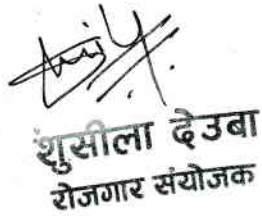 शुसीला देउबा
रोजगार संयोजक